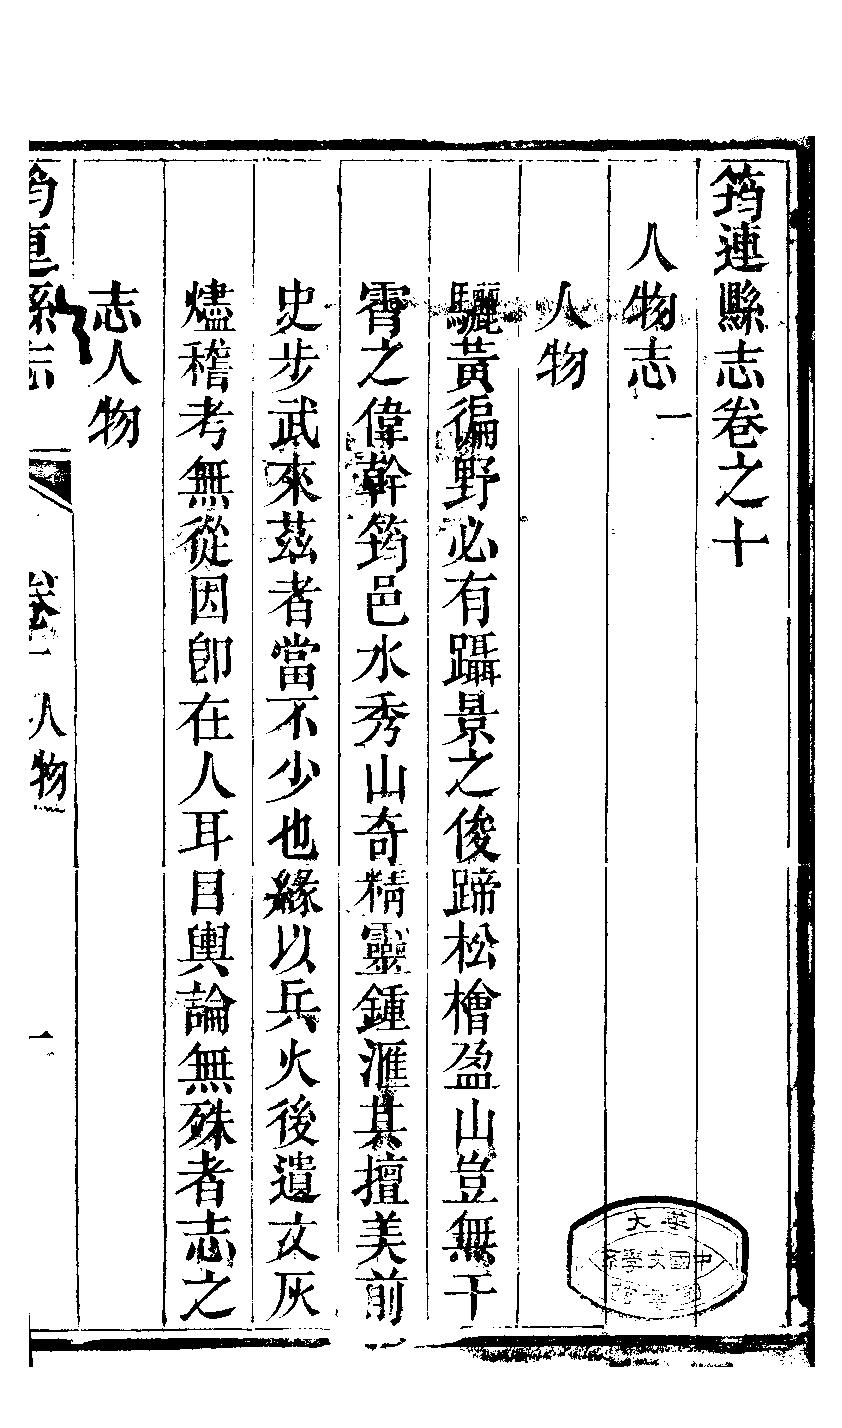 筠連縣志卷之十
人物志一
人物
驪黃徧野必有躡景之俊蹄松檜盈山豈無干
霄之偉幹筠邑水秀山奇精靈鍾滙其擅美前
史步武來茲者當不少也緣以兵火後遺文灰
燼稽考無從因卽在人耳目輿論無殊者志之
志人物
筠連縣志
卷
人物
一